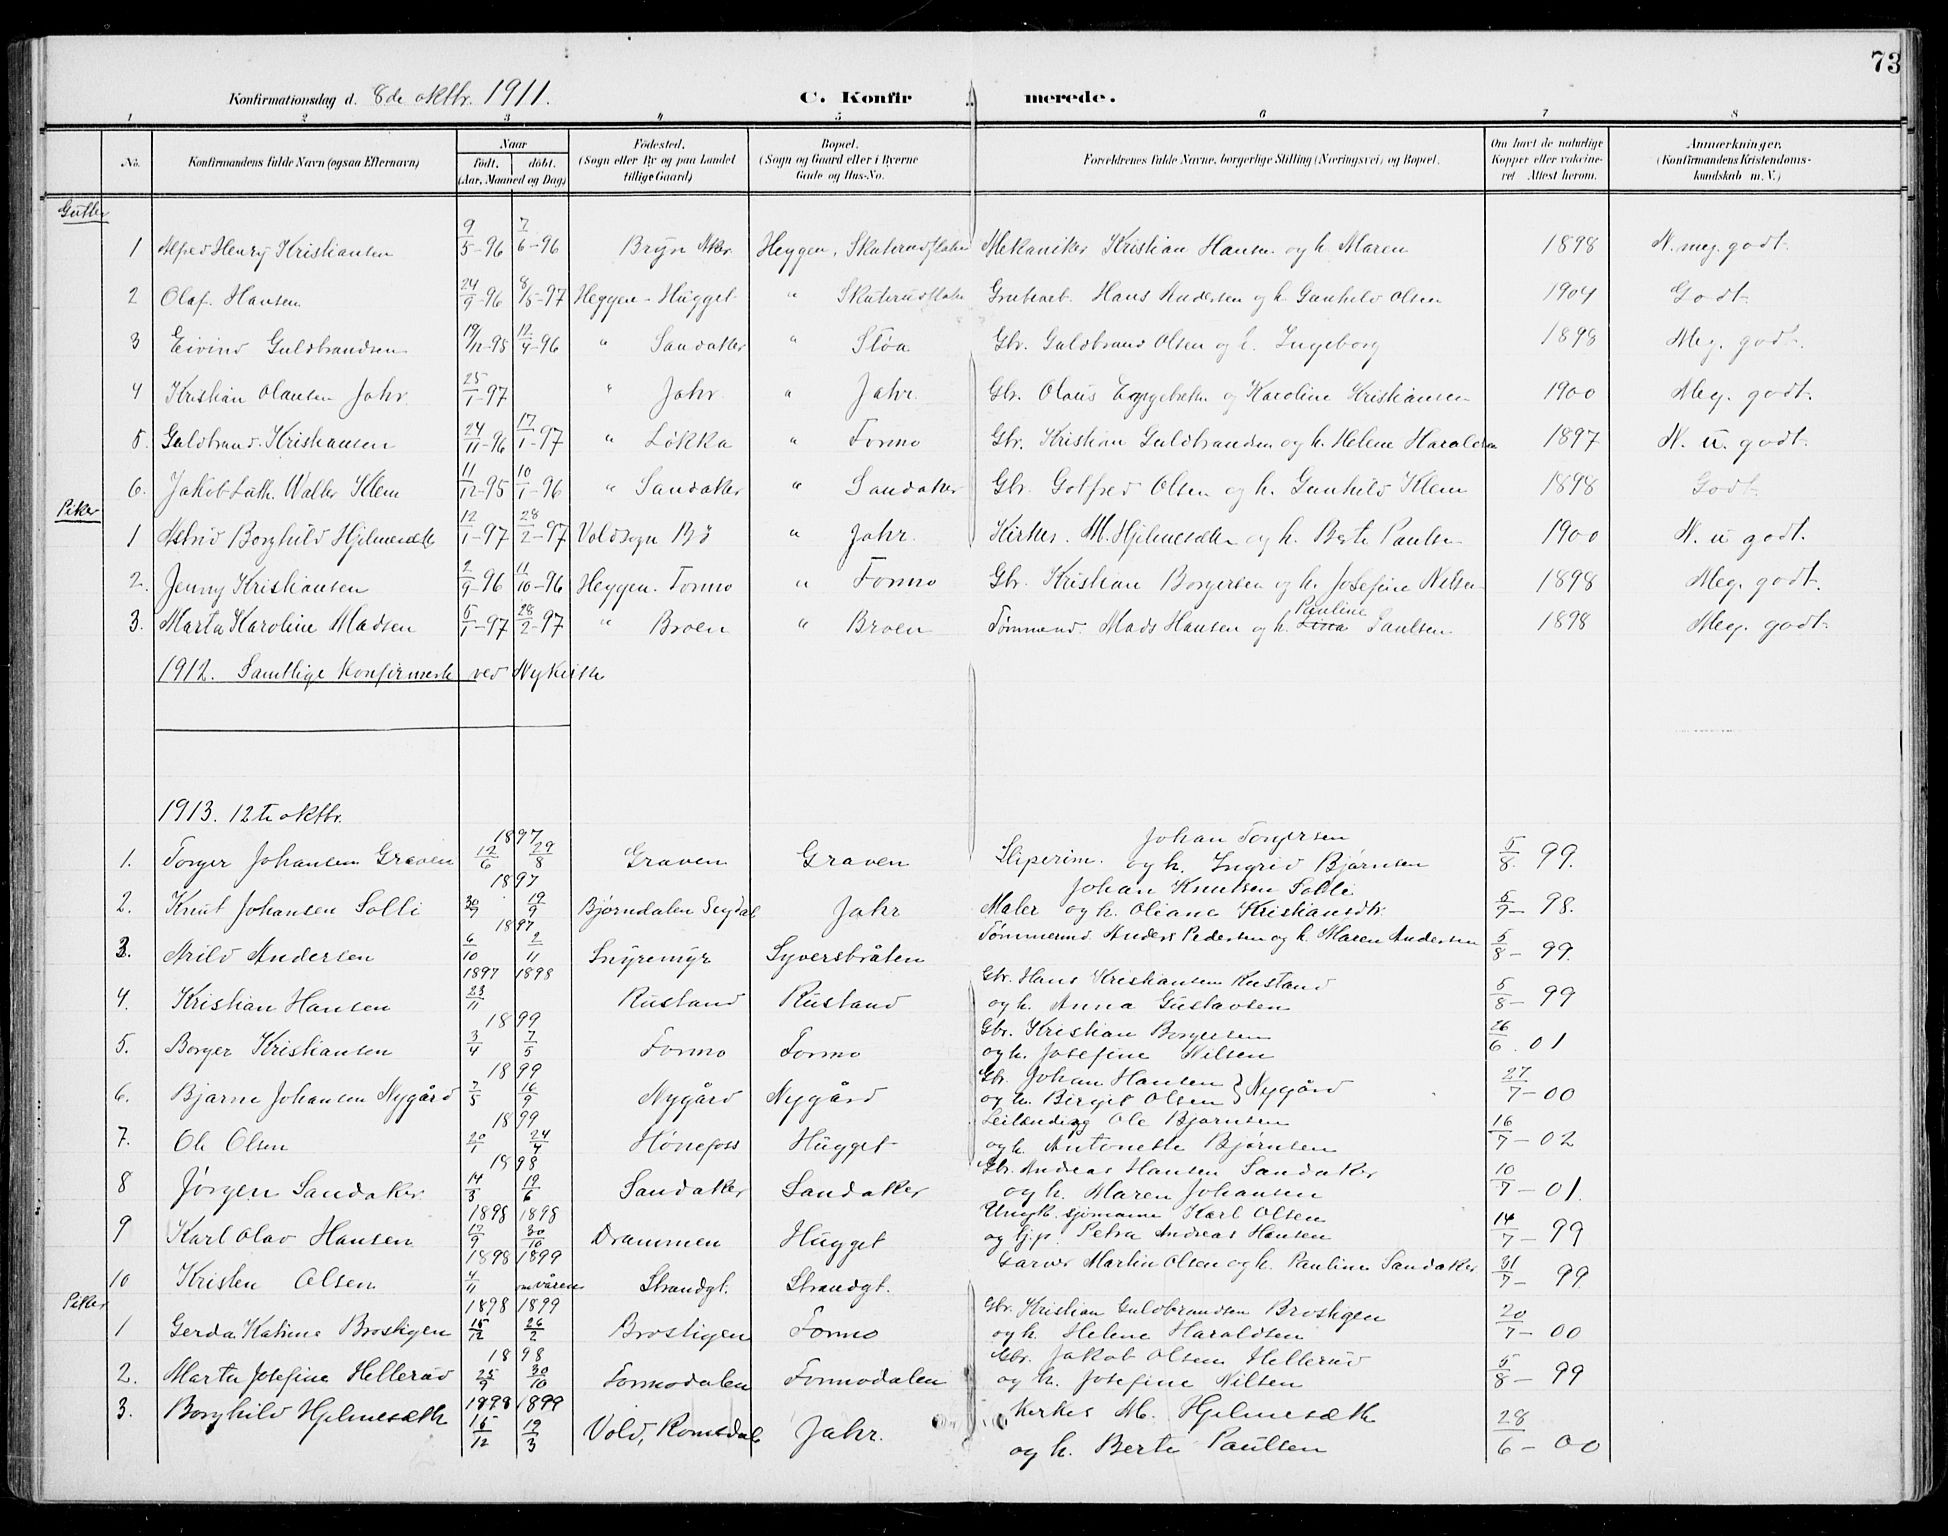 73
Konfirmationsdag d. 8de oktbr. 1911. C. Konfirmerede.
1 2 3 4 5 6 7 8
No. Konfirmandens fulde Navn (ogsaa Efternavn) Naar født. døbt. (Aar, Maaned og Dag) Fødested. (Sogn eller By og paa Landet tillige Gaard) Bopæl. (Sogn og Gaard eller i Byerne Gade og Hus-No. Forældrenes fulde Navne, borgerlige Stilling (Næringsvei) og Bopæl. Om havt de naturlige Kopper eller vakcineret. Attest herom. Anmærkninger. (Konfirmandens Kristendomskundskab m. V.)
Gutter
1 Alfred Henry Kristiansen 9/5-96 7/6-96 Bryn Aker Heggen, Skuterudflaten Mekaniker Kristian Hansen og h. Maren 1898 N. meg. godt.
2 Olaf Hansen 24/9-96 8/5-97 Heggen - Hugget " Skuterudflaten Grubearb. Hans Andersen og h. Gunhild Olsen 1904 Godt.
3 Eivind Guldbrandsen 19/12-95 12/4-96 " Sandaker " Støa Gbr. Guldbrand Olsen og h. Ingeborg 1898 Meg. godt.
4 Kristian Olausen Jahr 25/1-97 " Jahr. " Jahr. Gbr. Olaus Engebrets. og Karoline Kristiansen 1900 Meg. godt.
5. Guldbrand Kristiansen 24/11-96 17/1-97 " Løkka " Formo Gbr. Kristian Guldbrandsen og h. Helene Haraldsen 1897 N. u. godt.
6. Jakob Luth. Walter Klem 11/12-95 10/1-96 " Sandaker " Sandaker Gbr. Gotfred Olsen og h. Gunhild Klem 1898 Godt.
Piker
1 Astrid Borghild Hjelmesæth 12/1-97 28/2-97 Voldsogn By " Jahr. Kirkes. M. Hjelmesæth og h. Berte Paulsen 1900 N. u godt.
2. Jenny Kristiansen 2/9-96 11/10-96 Heggen. Formo " Formo Gbr. Kristian Borgersen og h. Josefine Nilsen 1898 Meg. godt.
3. Marta Karoline Madsen 5/1-97 28/2-97 " Broen " Broen Tømmermd. Mads Hansen og h. Lina Pauline Paulsen 1898 Meg. godt.
1912. Samtlige konfirmerte ved Nykirke
1913. 12te oktbr.
1. Torger Johansen Graven 1897 12/6 29/8 Graven Graven Sliperim. Johan Torgersen og h. Ingrid Bjørnsen 5/8. 99.
2. Knut Johansen Solli 1897 30/9 19/9 Bjørndalen Sigdal Jahr Maler Johan Knutsen Solli og h. Oliane Kristiansdtr. 5/9-98.
3. Arild Andersen 1897 6/10 2/11 Snyremyr Syversbråten Tømmermd. Anders Pedersen og h. Maren Andersen 5/8-99.
4. Kristian Hansen 1897 1898 23/11 Rustand Rustand Gbr. Hans Kristiansen Rustand og h. Anna Gustavsen 5/8-99
5. Borger Kristiansen 1899 3/4 7/5 Formo Formo Gbr. Kristian Borgersen og h. Josefine Nilsen 26/6. 01
6. Bjarne Johansen Nygård 1899 7/5 16/9 Nygård Nygård Gbr. Johan Hansen og h. Birgit Olsen } Nygård 27/7-00
7. Ole Olsen 1899 20/1 24/4 Hönefoss Hugget Leilænding Ole Bjørnsen og h. Antonette Bjørnsen 16/7-02
8 Jörgen Sandaker 1898 14/3 19/6 Sandaker Sandaker Gbr. Andreas Hansen Sandaker og h. Maren Johansen 10/7-01.
9 Karl Olav Hansen 1898 1898 12/9 30/10 Drammen Hugget Ungk. sjømann Karl Olsen og pige Petra Andreas Hansen 14/7-99
10 Kristen Olsen 1898 1899 4/11 om våren Strandgt. Strandgt. Garver Martin Olsen og h. Pauline Sandaker 31/7-99.
Piker
1 Gerda Katrine Brostigen 1898 1899 15/12 26/2 Brostigen Formo Gbr. Kristian Guldbrandsen Brostigen og h. Helene Haraldsen 20/7-00
2. Marta Josefine Hellerud 1898 25/9 30/10 Formodalen Formodalen Gbr. Jakob Olsen Hellerud og h. Josefine Nilsen 5/8-99
3. Borghild Hjelmesæth 1898 1899 15/12 12/3 Vold, Romsdal Jahr. Kirkes M. Hjelmesæth og h. Berte Paulsen 28/6-00